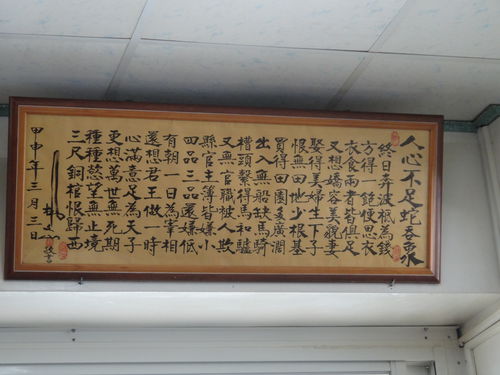 人心不足蛇吞象
終日奔波祇為錢
方得一飽便思衣
衣食兩者皆俱足
又想嬌容美貌妻
娶得美婦生下子
恨無田地少根基
買得田園多廣濶
出入無船缺馬騎
槽頭繫得馬和驢
又無官職被人欺
縣官主簿皆嫌小
四品三品還嫌低
有朝一日為宰相
還想君王做一時
心滿意足為天子
更想萬世無死期
種種慾望無止境
三尺銅棺恨歸西
甲申年三月三日